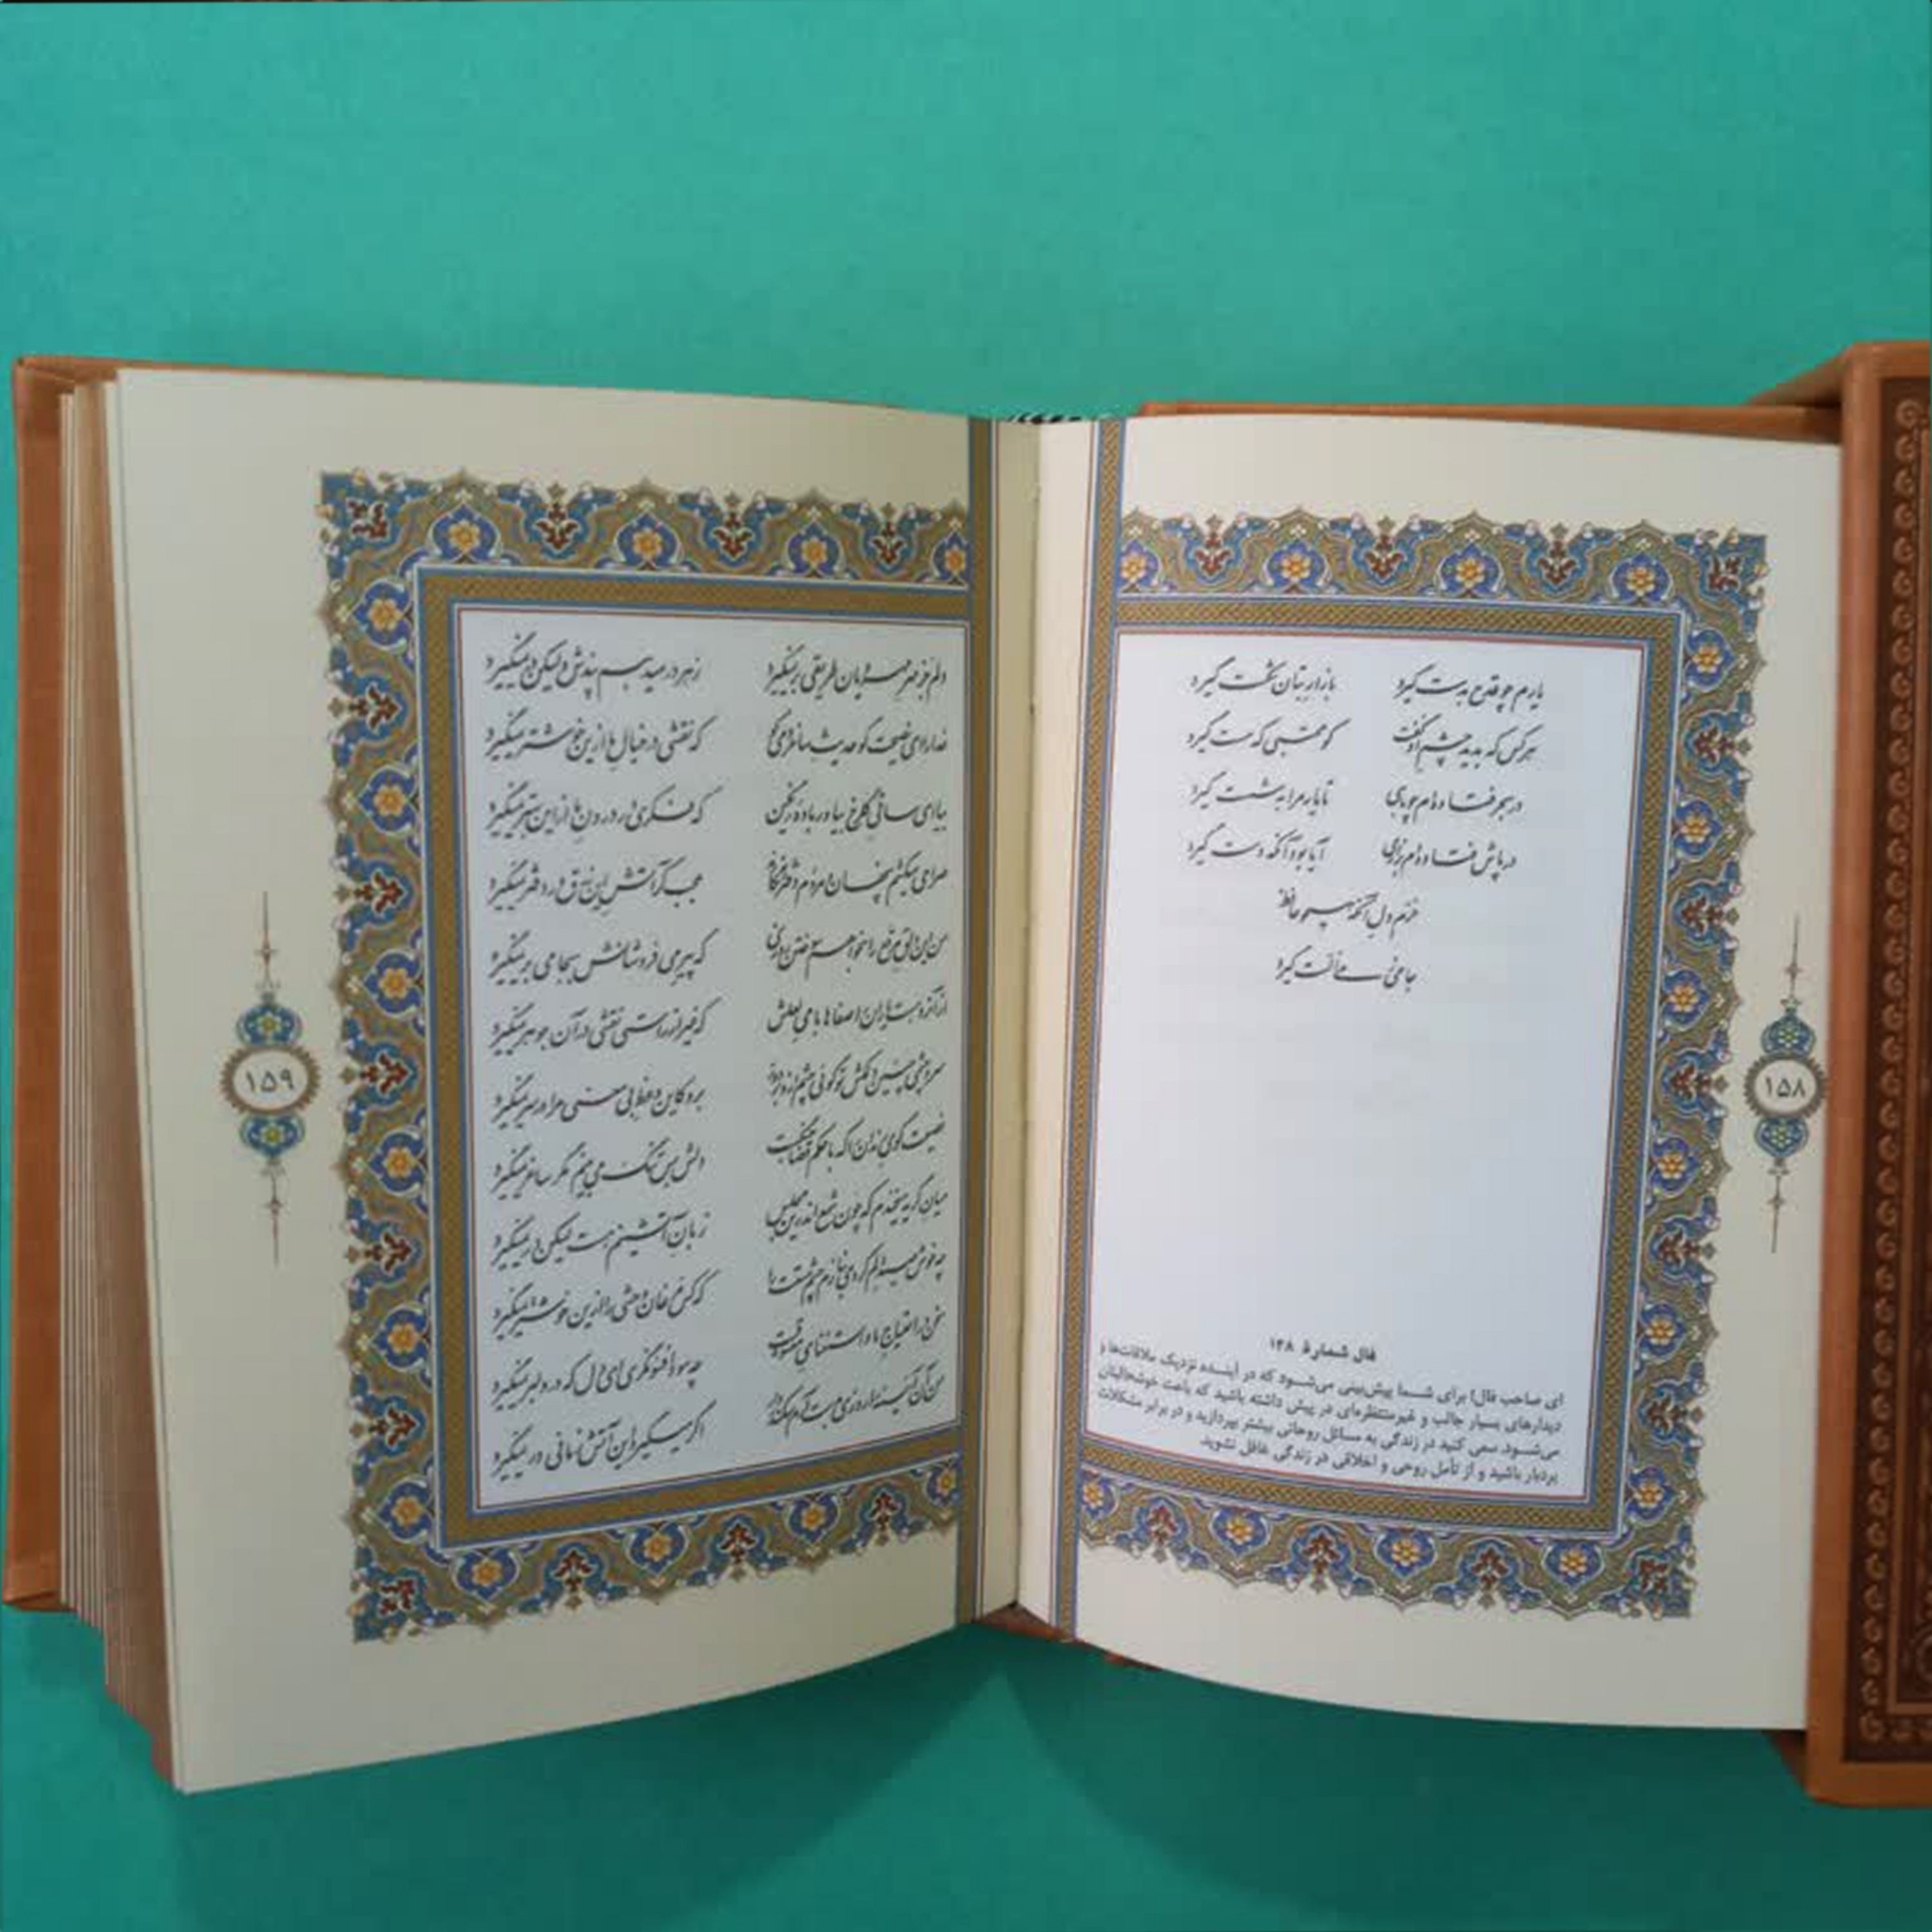 یارم چو قدح بدست گیرد بازار بتان شکست گیرد
هر کس که بدید چشم او گفت کو محتسبی که مست گیرد
در بحر فتاده‌ام چو ماهی تا یار مرا به شست گیرد
در پاش فتاده‌ام بزاری آیا بود آنکه دست گیرد
خرم دل آنکه همچو حافظ
جامی ز می الست گیرد
فال شمارهٔ ۱۴۸
ای صاحب فال! برای شما پیش‌بینی می‌شود که در آینده نزدیک ملاقات‌ها و
دیدارهای بسیار جالب و غیرمنتظره‌ای در پیش داشته باشید که باعث خوشحالیتان
می‌شود. سعی کنید در زندگی به مسائل روحانی بیشتر بپردازید و در برابر مشکلات
بردبار باشید و از تأمل روحی و اخلاقی در زندگی غافل نشوید.
۱۵۸
دلم جز مهر مه رویان طریقی بر نمیگیرد ز هر در میدهم پندش ولیکن در نمیگیرد
خدا را ای نصیحت گو حدیث ساغر و می گو که نقشی در خیال ما از این خوشتر نمیگیرد
بیا ای ساقی گلرخ بیاور باده رنگین که فکری در درون ما از این بهتر نمیگیرد
صراحی میکشم پنهان و مردم دفتر انگارند عجب گر آتش این زرق در دفتر نمیگیرد
من این دلق مرقع را بخواهم سوختن روزی که پیر می فروشانش بجامی بر نمیگیرد
از آن رو هست یاران را صفاها با می لعلش که غیر از راستی نقشی در آن جوهر نمیگیرد
سر و چشمی چنین دلکش تو گوئی چشم ازو بردوز برو کاین وعظ بی معنی مرا در سر نمیگیرد
نصیحت گوی رندان را که با حکم قضا جنگست دلش بس تنگ می بینم مگر ساغر نمیگیرد
میان گریه میخندم که چون شمع اندرین مجلس زبان آتشینم هست لیکن در نمیگیرد
چه خوش صید دلم کردی بنازم چشم مستت را که کس مرغان وحشی را ازین خوشتر نمیگیرد
سخن در احتیاج ما و استغنای معشوقست چه سود افسونگری ای دل که در دلبر نمیگیرد
من آن آئینه را روزی بدست آرم سکندروار اگر میگیرد این آتش زمانی ور نمیگیرد
۱۵۹